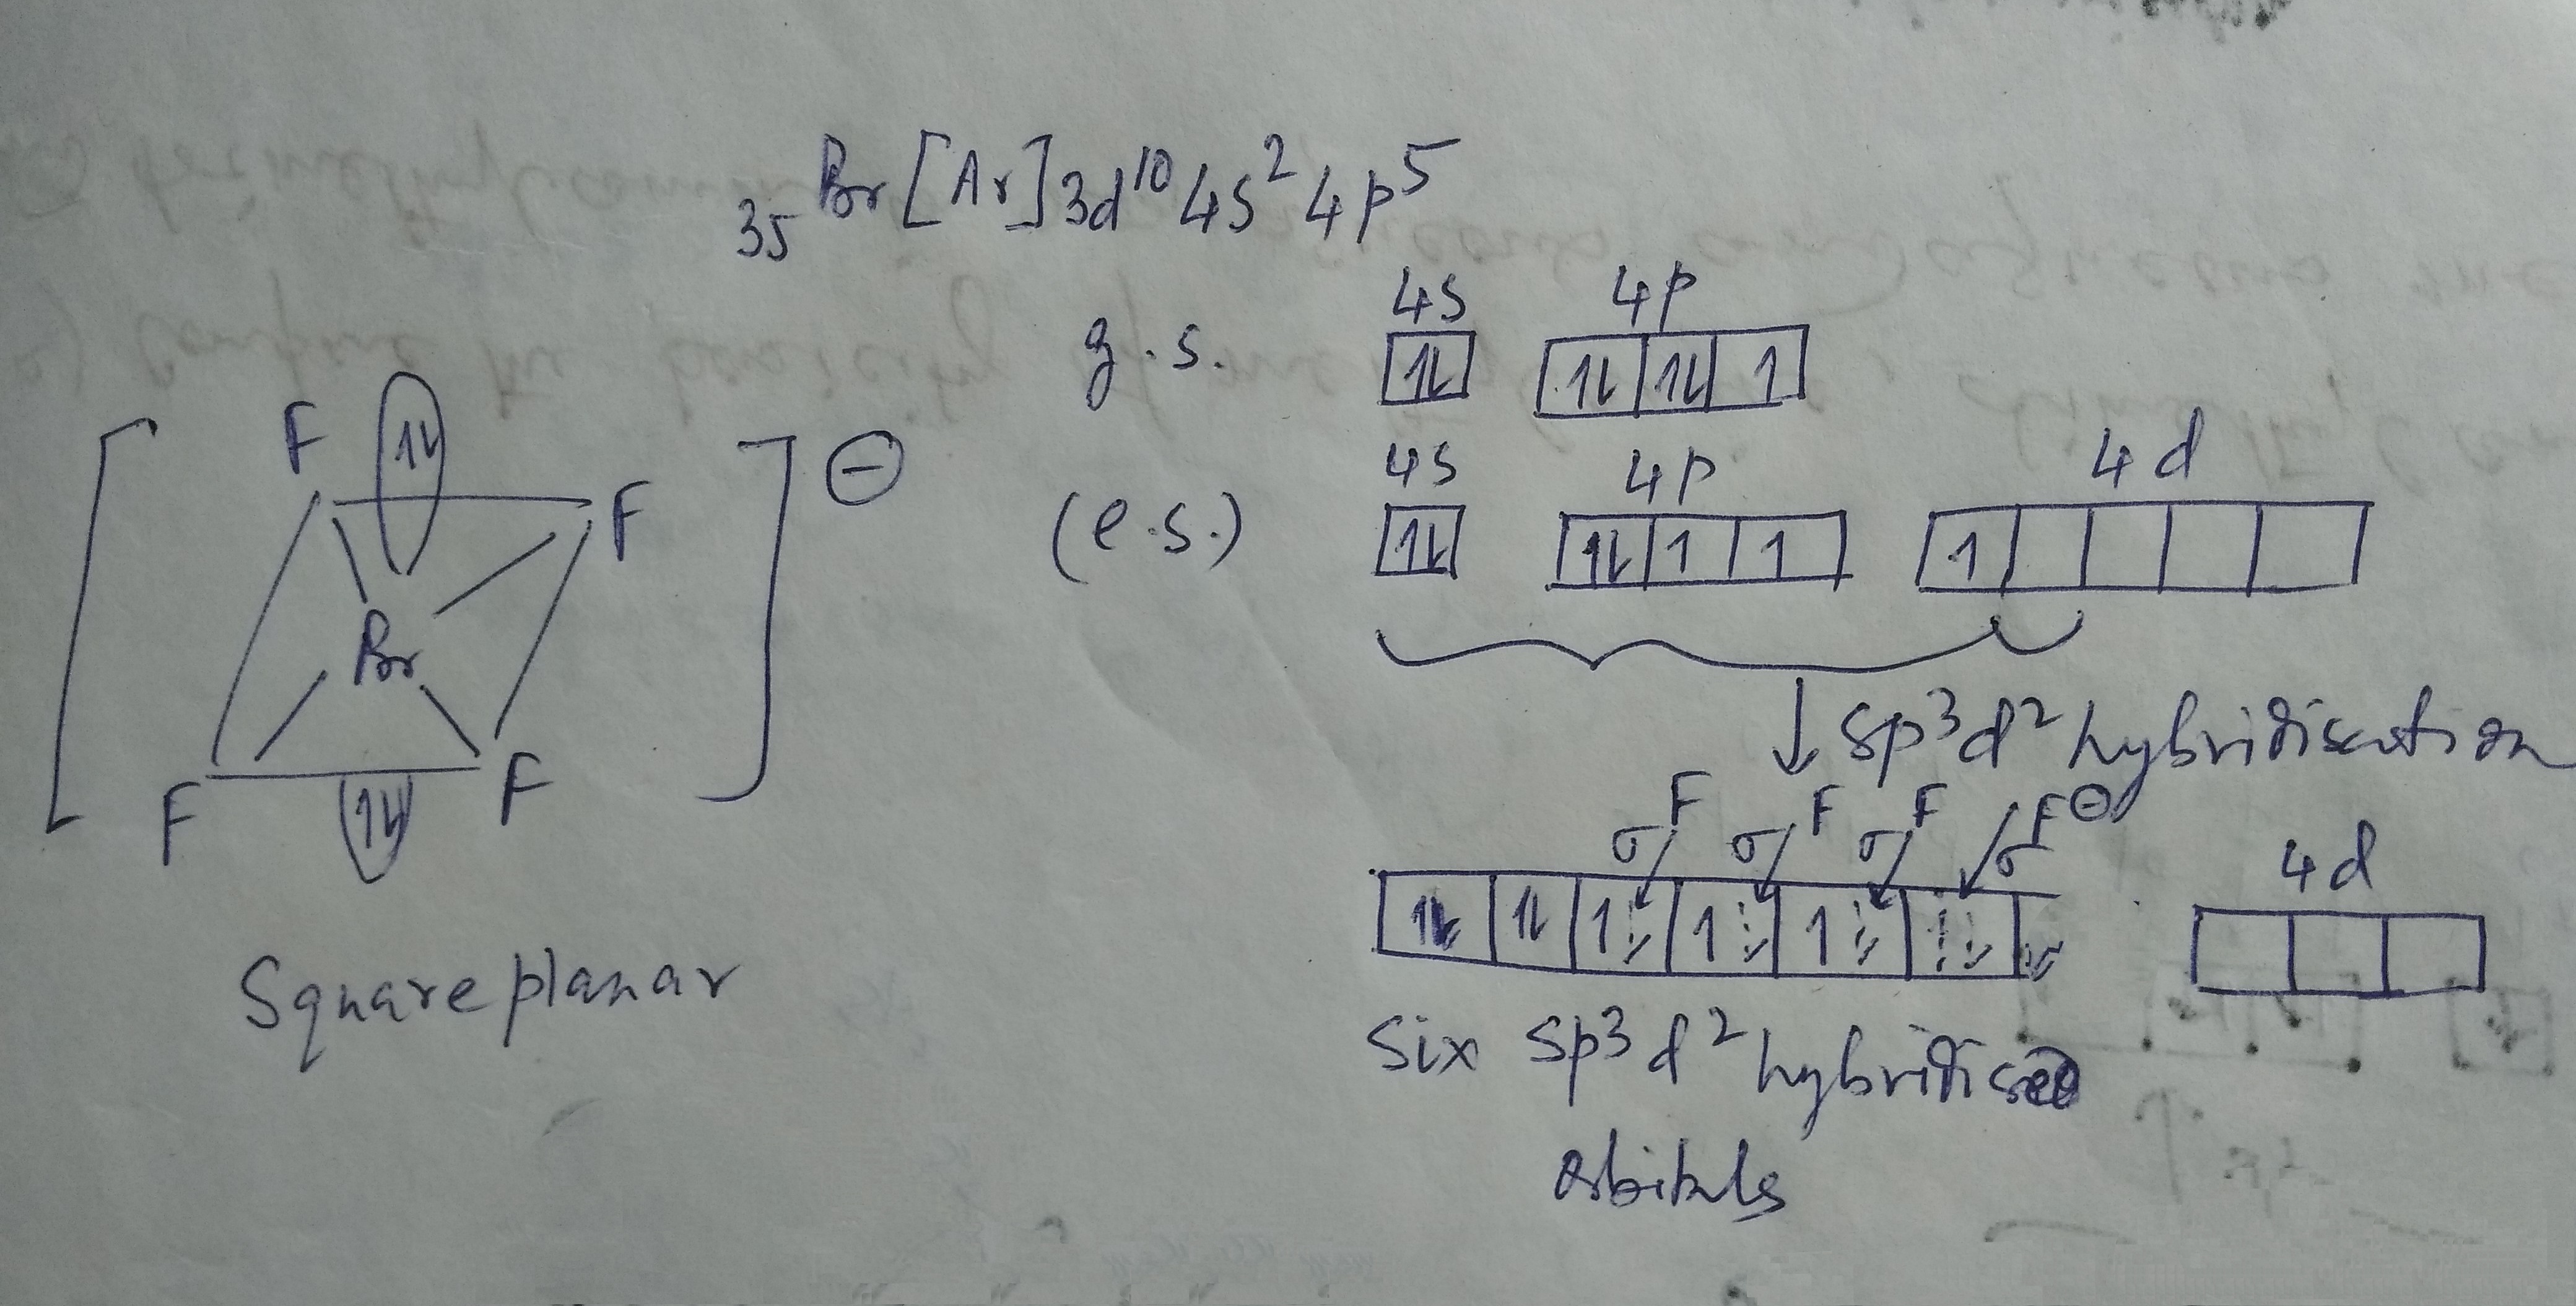 35Br [Ar] 3d¹⁰ 4s² 4p⁵
4s 4p
g.s. 1L 1L 1L 1
4s 4p 4d
(e.s.) 1L 1L 1 1 1
↓ sp³d² hybridisation
F F F F⊖
σ σ σ σ
1L 1L 1 1 1
4d
six sp³d² hybridised
orbitals
F 1L F ⊖
Br
F 1L F
Square planar